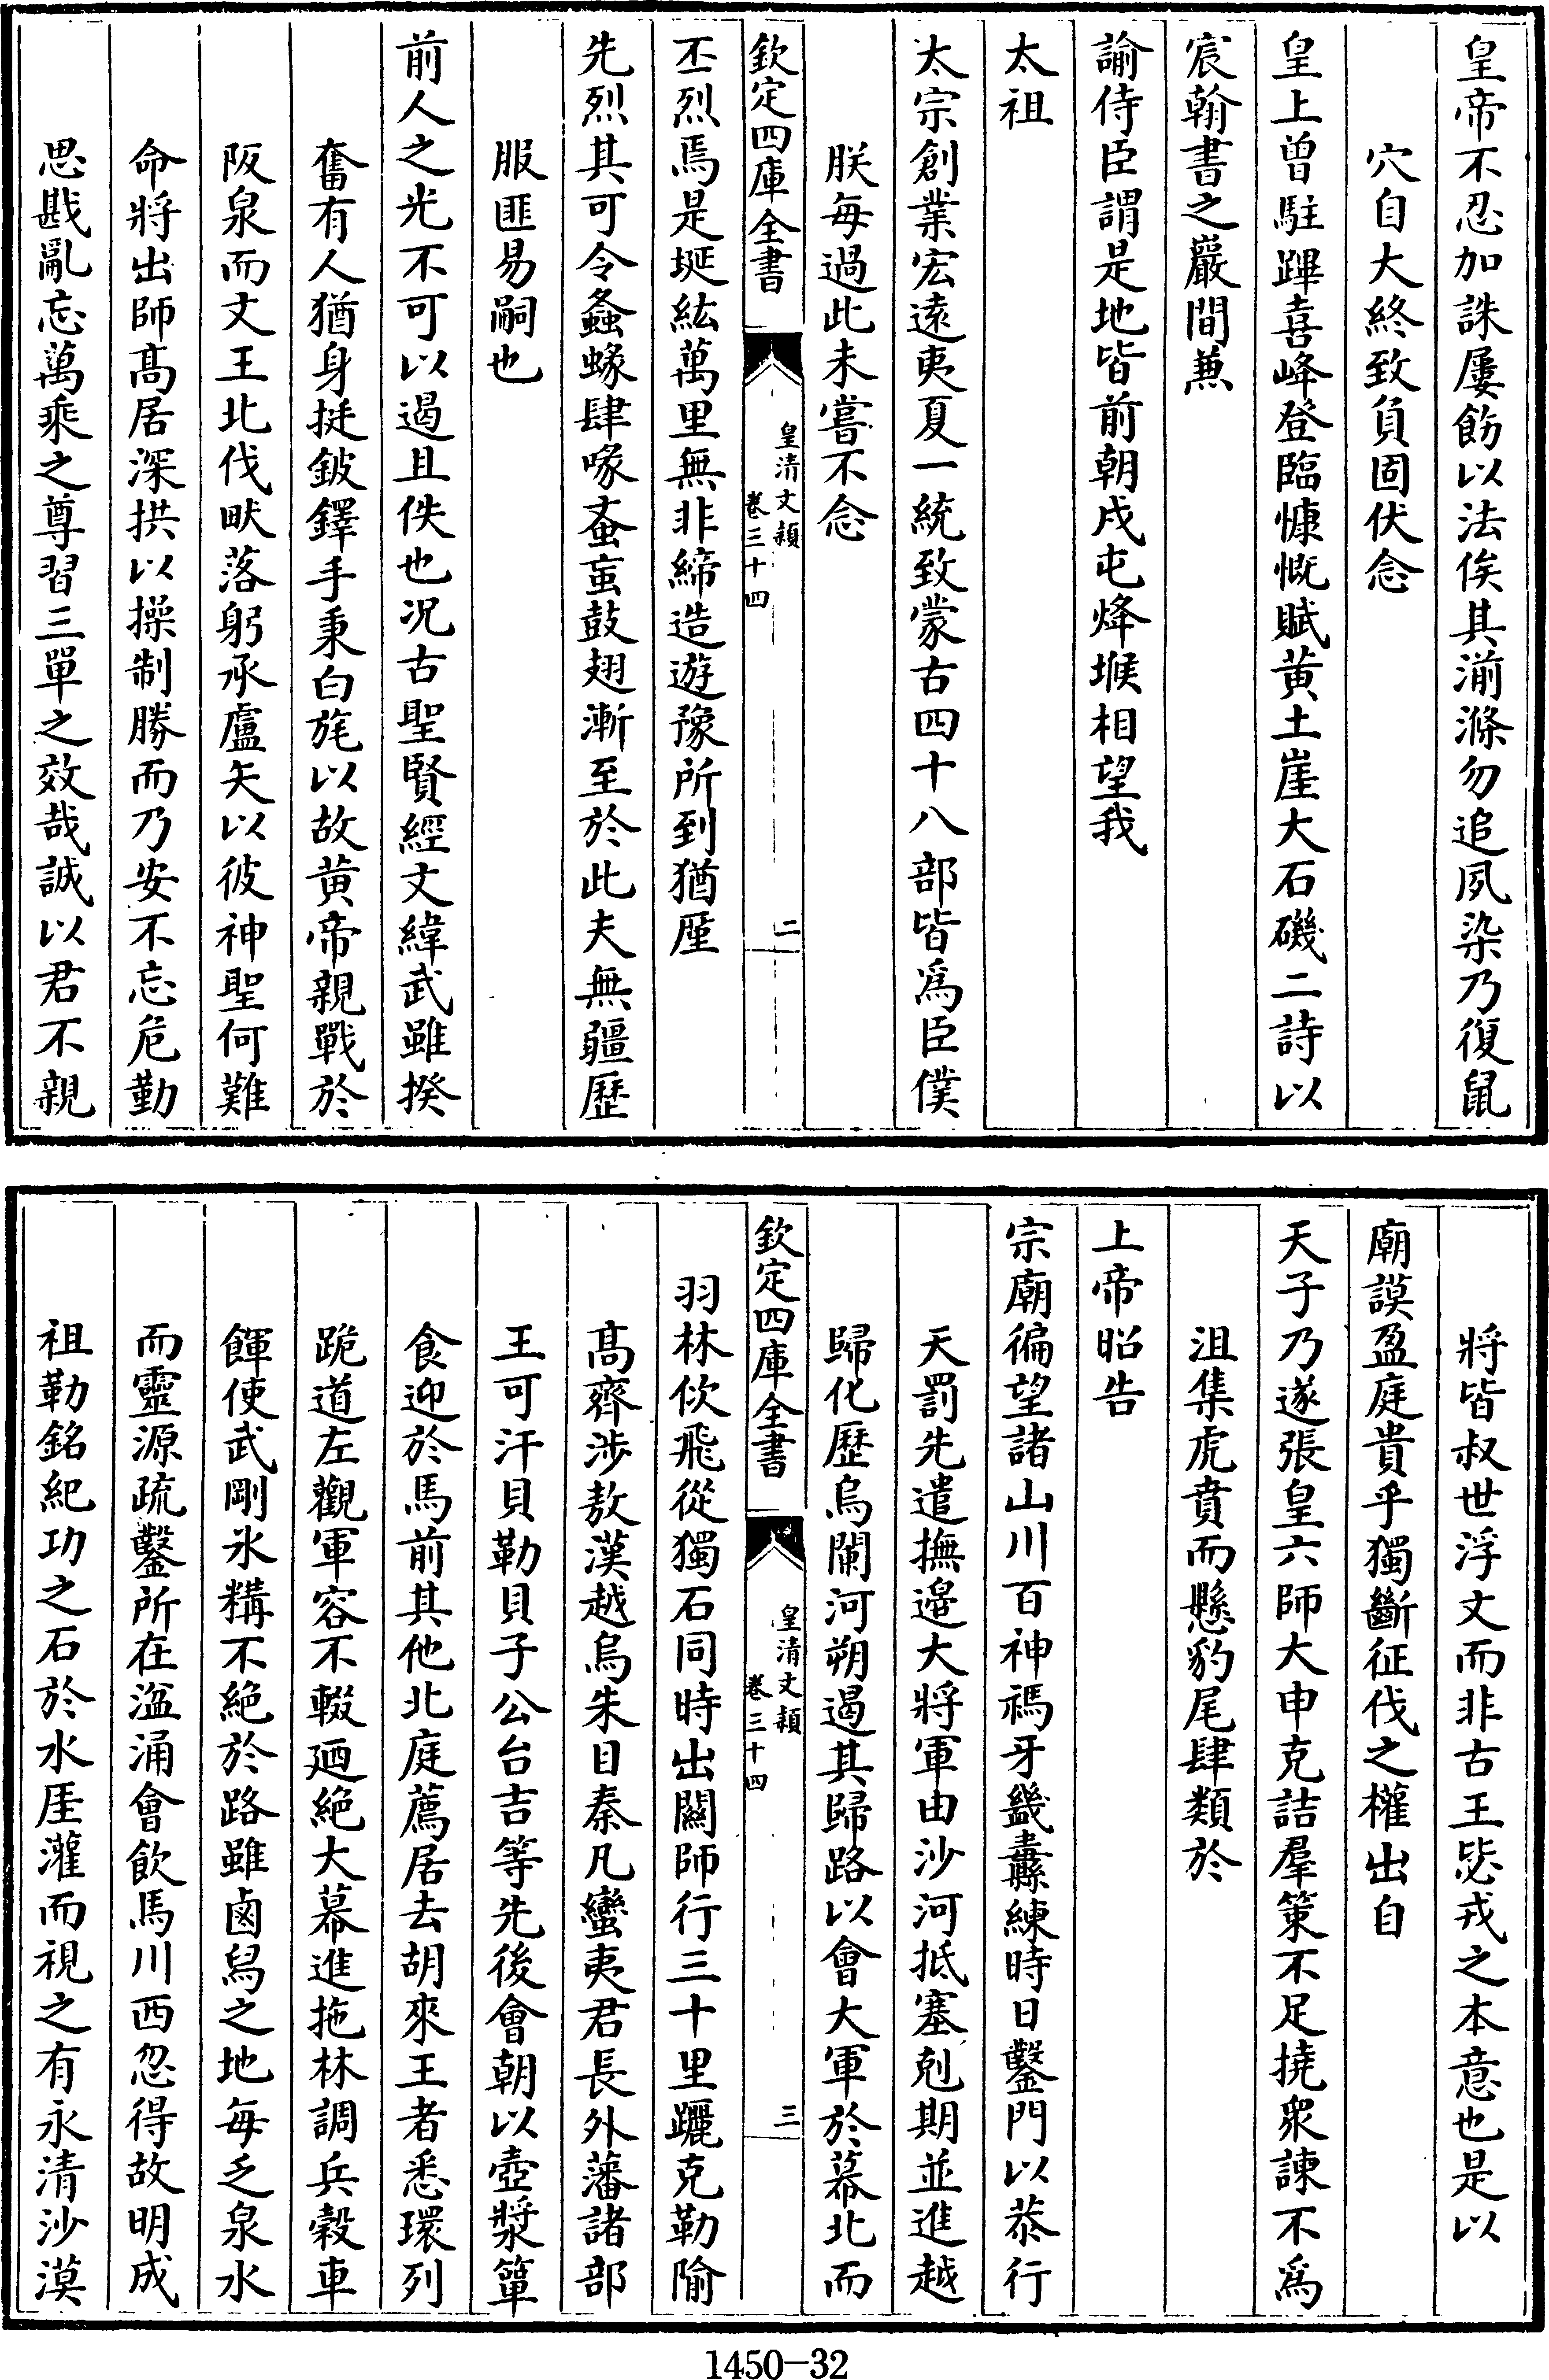 皇帝不忍加誅屢飭以法俟其湔滌勿追夙染乃復鼠
穴自大終致負固伏念
皇上曽駐蹕喜峰登臨慷慨賦黄土崖大石磯二詩以
宸翰書之巖間兼
諭侍臣謂是地皆前朝戍屯烽堠相望我
太祖
太宗創業宏遠夷夏一統致蒙古四十八部皆爲臣僕
朕每過此未嘗不念
欽定四庫全書
皇清文穎
卷三十四
二
丕烈焉是埏紘萬里無非締造遊豫所到猶厪
先烈其可令螽蝝肆喙蚉䖟鼓翅漸至於此夫無疆歷
服匪易嗣也
前人之光不可以遏且佚也况古聖賢經文緯武雖揆
奮有人猶身挺鈹鐸手秉白旄以故黄帝親戰於
阪泉而文王北伐畎落躬承盧矢以彼神聖何難
命將出師髙居深拱以操制勝而乃安不忘危勤
思戡亂忘萬乘之尊習三單之效哉誠以君不親
將皆叔世浮文而非古王毖戎之本意也是以
廟謨盈庭貴乎獨斷征伐之權出自
天子乃遂張皇六師大申克詰羣策不足撓衆諫不爲
沮集虎賁而懸豹尾肆類於
上帝昭告
宗廟徧望諸山川百神禡牙釁纛練時日鑿門以恭行
天罰先遣撫邉大將軍由沙河抵塞剋期並進越
歸化歷烏闌河朔遏其歸路以會大軍於幕北而
欽定四庫全書
皇清文穎
卷三十四
三
羽林佽飛從獨石同時出闗師行三十里躧克勒隃
髙齊涉敖漢越烏朱目秦凡蠻夷君長外藩諸部
王可汗貝勒貝子公台吉等先後會朝以壺漿簞
食迎於馬前其他北庭薦居去胡來王者悉環列
跪道左觀軍容不輟廼絶大幕進拖林調兵穀車
餫使武剛氷糒不絶於路雖鹵舄之地每乏泉水
而靈源疏鑿所在湓涌會飲馬川西忽得故明成
祖勒銘紀功之石於水厓灌而視之有永清沙漠
1450-32